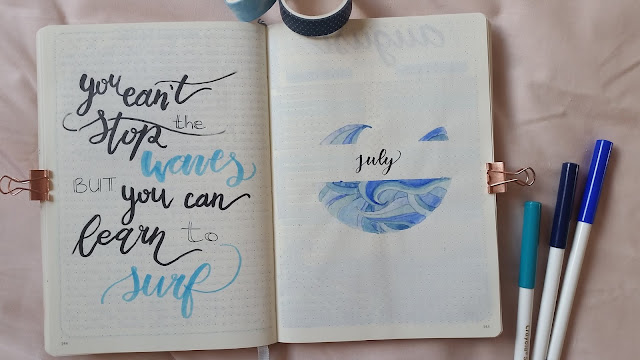 you can't
stop the
waves
BUT you can
learn to
surf
july
august